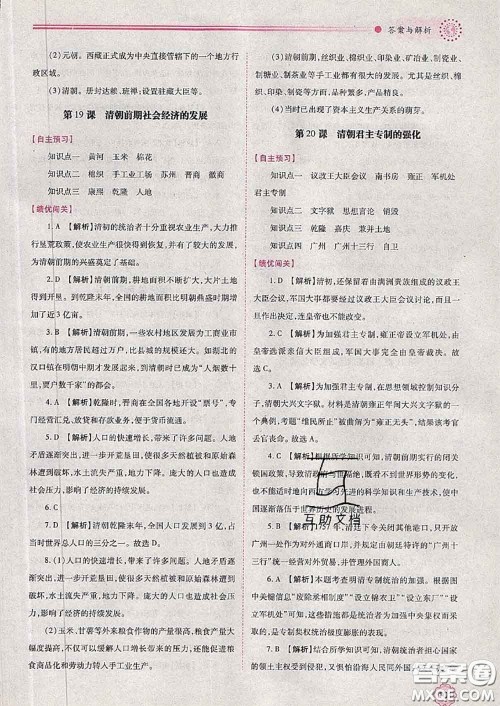 答案与解析
(2)元朝。西藏正式成为中央直接管辖下的一个地方行
政区域。
(3)清朝。册封达赖、班禅；设置驻藏大臣等。
第19课 清朝前期社会经济的发展
【自主预习】
知识点一 黄河 玉米 棉花
知识点二 棉织 手工业工场 苏州 晋商 徽商
知识点三 康熙 乾隆 人地
【绩优闯关】
1.A 【解析】清初的统治者十分重视农业生产，大力推
行垦荒政策，使农业生产得到恢复，并有了较大的发展，为
清朝前期的兴盛奠定了基础。
2.D 【解析】清朝前期，耕地面积不断扩大，大片土地
得到开垦。到乾隆末年，全国耕地面积比明朝鼎盛时期增
加了近3亿亩。
3.B 【解析】清朝前期，一些农村地区发展为工商业市
镇，数目大大超过明朝，比县城的规模更大。如湖北的
汉口镇在明朝中期才发展，到清初时已成为“人烟数十
里，贾户数千家”的都会。
4.B 【解析】清朝后期，晋商在全国各地开设“票号”，专
门经营汇兑、放贷和存款业务，便于货币流通。
5.D 【解析】人口的快速增长，带来了许多问题。人地
矛盾逐渐突出，进一步开垦荒田，使很多天然植被和原始森林
遭到破坏，水土流失严重，地方生态环境恶化。庞大的人
口也影响了经济的持续发展。
6.C
7.D 【解析】清朝乾隆末年，全国人口发展到3亿，占
当时世界总人口的三分之一。故选D。
8.(1)人口的快速增长，带来了许多问题。人地矛盾
逐渐突出，进一步开荒垦田，使很多天然植被和原始森林
遭到破坏，水土流失严重，地方生态环境恶化。庞大的人
口也影响了经济的持续发展。
(2)玉米、甘薯等外来粮食作物的引种，粮食产量大幅
度提高，不仅可以养活更多的人口，也可以有更多的粮食
商品化和劳动力转入手工业生产。
(3)清朝前期，丝织业、棉织业、印染业、矿冶业、制瓷业、
制糖业、制茶业等手工业都有很大的发展。尤其是丝织、棉
织、印染、制瓷等方面，品种繁多，产品精良。
(4)当时已出现了资本主义生产关系的萌芽。
第20课 清朝君主专制的强化
【自主预习】
知识点一 议政王大臣会议 南书房 雍正 军机处
君主专制
知识点二 文字狱 思想言论 销毁
知识点三 乾隆 嘉庆 兼并土地
知识点四 广州 广州十三行 自卫
【绩优闯关】
1.A 【解析】清初，还保留着由满洲贵族组成的议政王大
臣会议，军国大事都要经过议政王大臣会议讨论，而且一旦作
出决定，连皇帝也不能更改。
2.A 【解析】为加强君主专制，雍正帝设立军机处，由
皇帝选派亲信大臣组成，军国大事完全由皇帝裁决。故
选A。
3.A 【解析】为加强君主专制，在思想领域控制知识分
子，清朝大兴文字狱。材料是清朝雍正年间大兴文字狱的一
个典例，考题“维民所止”被曲解为“雍正无头”，其结果该考官
丢官丧命。故选A。
4.B 【解析】根据所学知识可知，清朝前期的闭关
锁国政策，导致清政府与世隔绝，看不到世界形势的变
化，也不能主动地向西方学习先进的科学知识和生产技术，使中
国逐渐落伍于世界历史的发展进程。
5.B 【解析】1757年，清廷下令关闭其他港口，只开放
广州一处作为对外通商口岸，并规定由朝廷特许的“广州十
三行”统一经营对外贸易，与外商直接交易。
6.A 【解析】本题考查明清专制统治的加强。根据图
中关键信息“废除丞相制度”“设立锦衣卫”“设立东厂”“设
立军机处”可知，这些措施都是为加强中央集权而采取
的。故选A。
7.B 【解析】专制集权统治极度腐朽的清朝，为了巩固国家
的领土主权受到侵犯，又惧怕沿海人民同外国
互助文档
答案圈
MXQE.COM